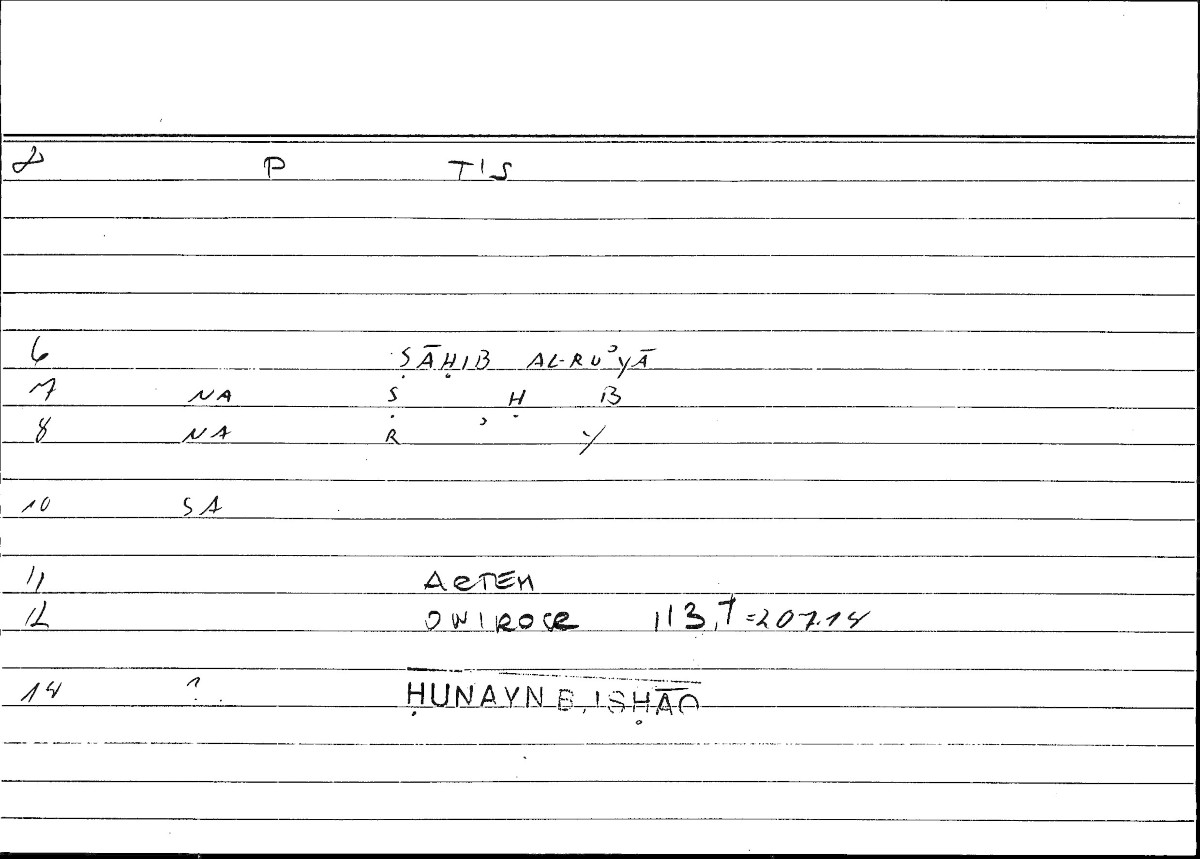 P T'S
6 ṢĀḤIB AL-RUʾYĀ
7 NA Ṣ Ḥ B
8 NA R ʾ Y
10 SA
11 ARTEM
12 ONIROCR 113,7=207.14
14 ? ḤUNAYN B. ISḤĀQ